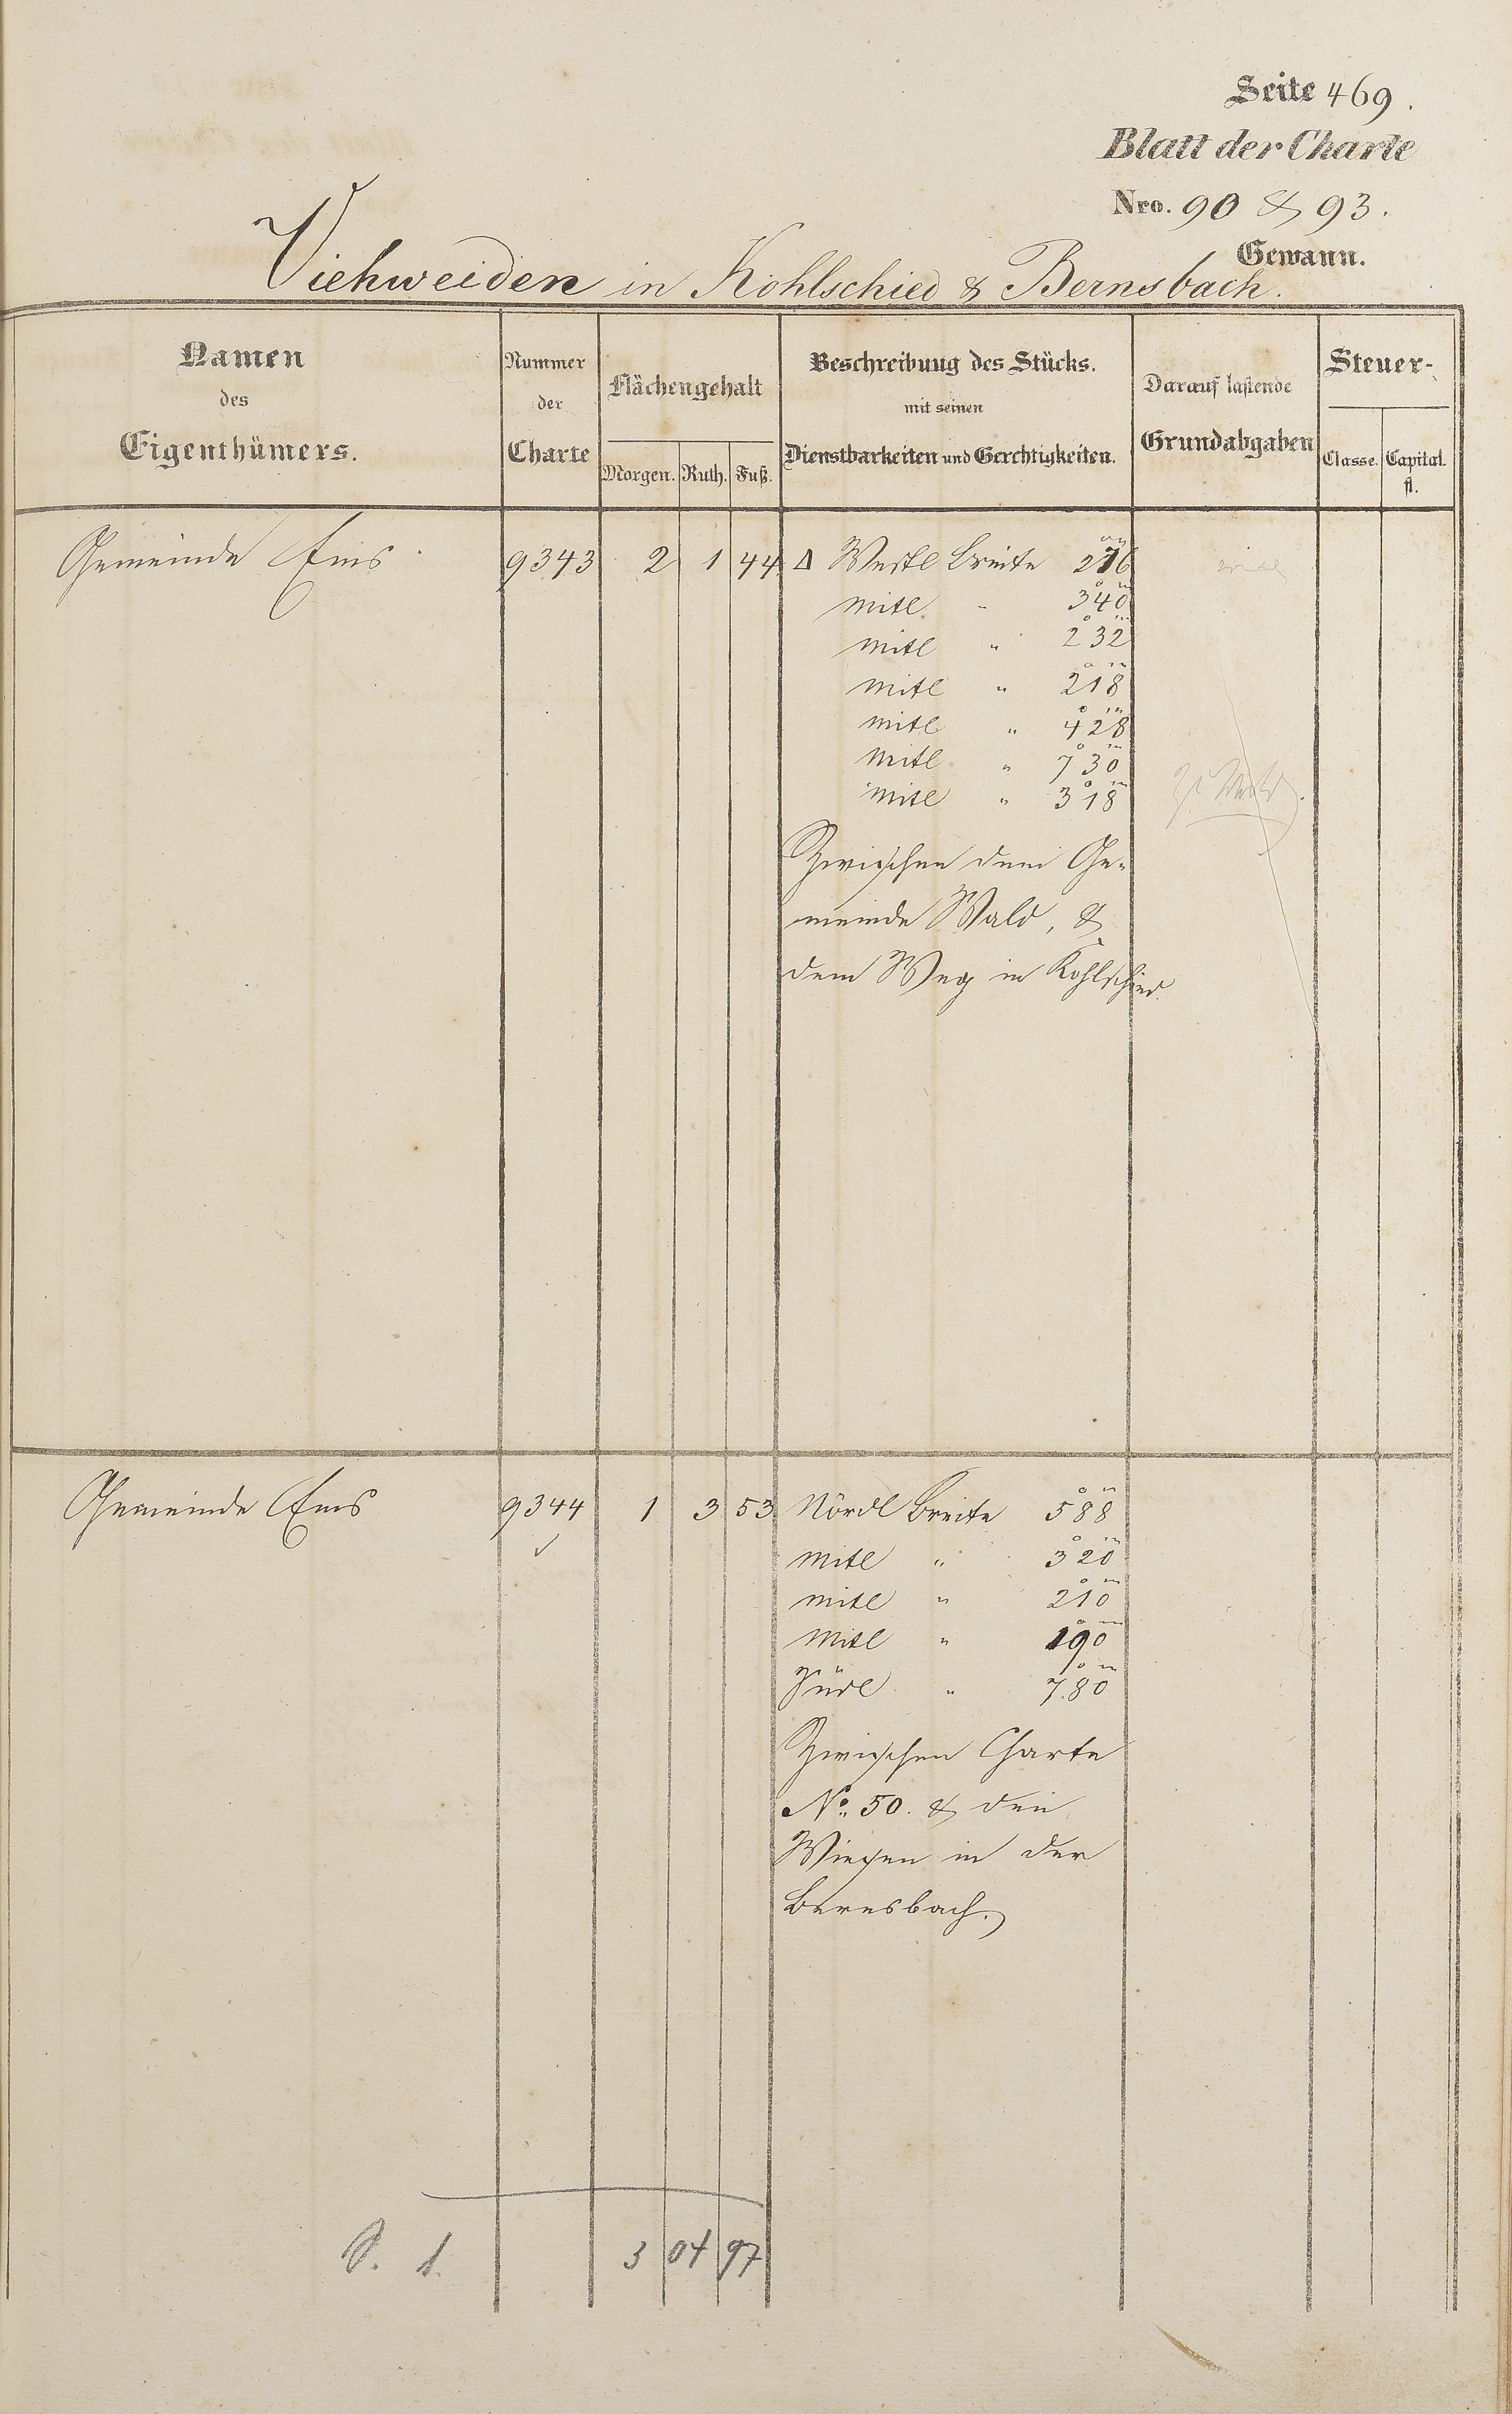 Seite 469.
Blatt der Charte
Nro. 90 & 93.
Gewann.
Viehweiden in Kohlschied & Bernsbach.
Namen des Eigenthümers.
Nummer der Charte
Flächengehalt
Morgen. Ruth. Fuß.
Beschreibung des Stücks.
mit seinen
Dienstbarkeiten und Gerechtigkeiten.
Darauf lastende
Grundabgaben
Steuer-
Classe. Capital. fl.
Gemeinde Ems 9343 2 1 44 Δ Westl Breite 216
mitl " 340
mitl " 232
mitl " 218
mitl " 428
mitl " 730
mitl " 318
Zwischen dem Ge-
meinde Wald, &
dem Weg in Kohlschied.
Gemeinde Ems 9344 1 3 53 Nördl Breite 588
mitl " 320
mitl " 210
mitl " 190
Südl " 780
Zwischen Charte
No. 50. & den
Wiesen in der
Bernsbach.
S. 1. 3 04 97